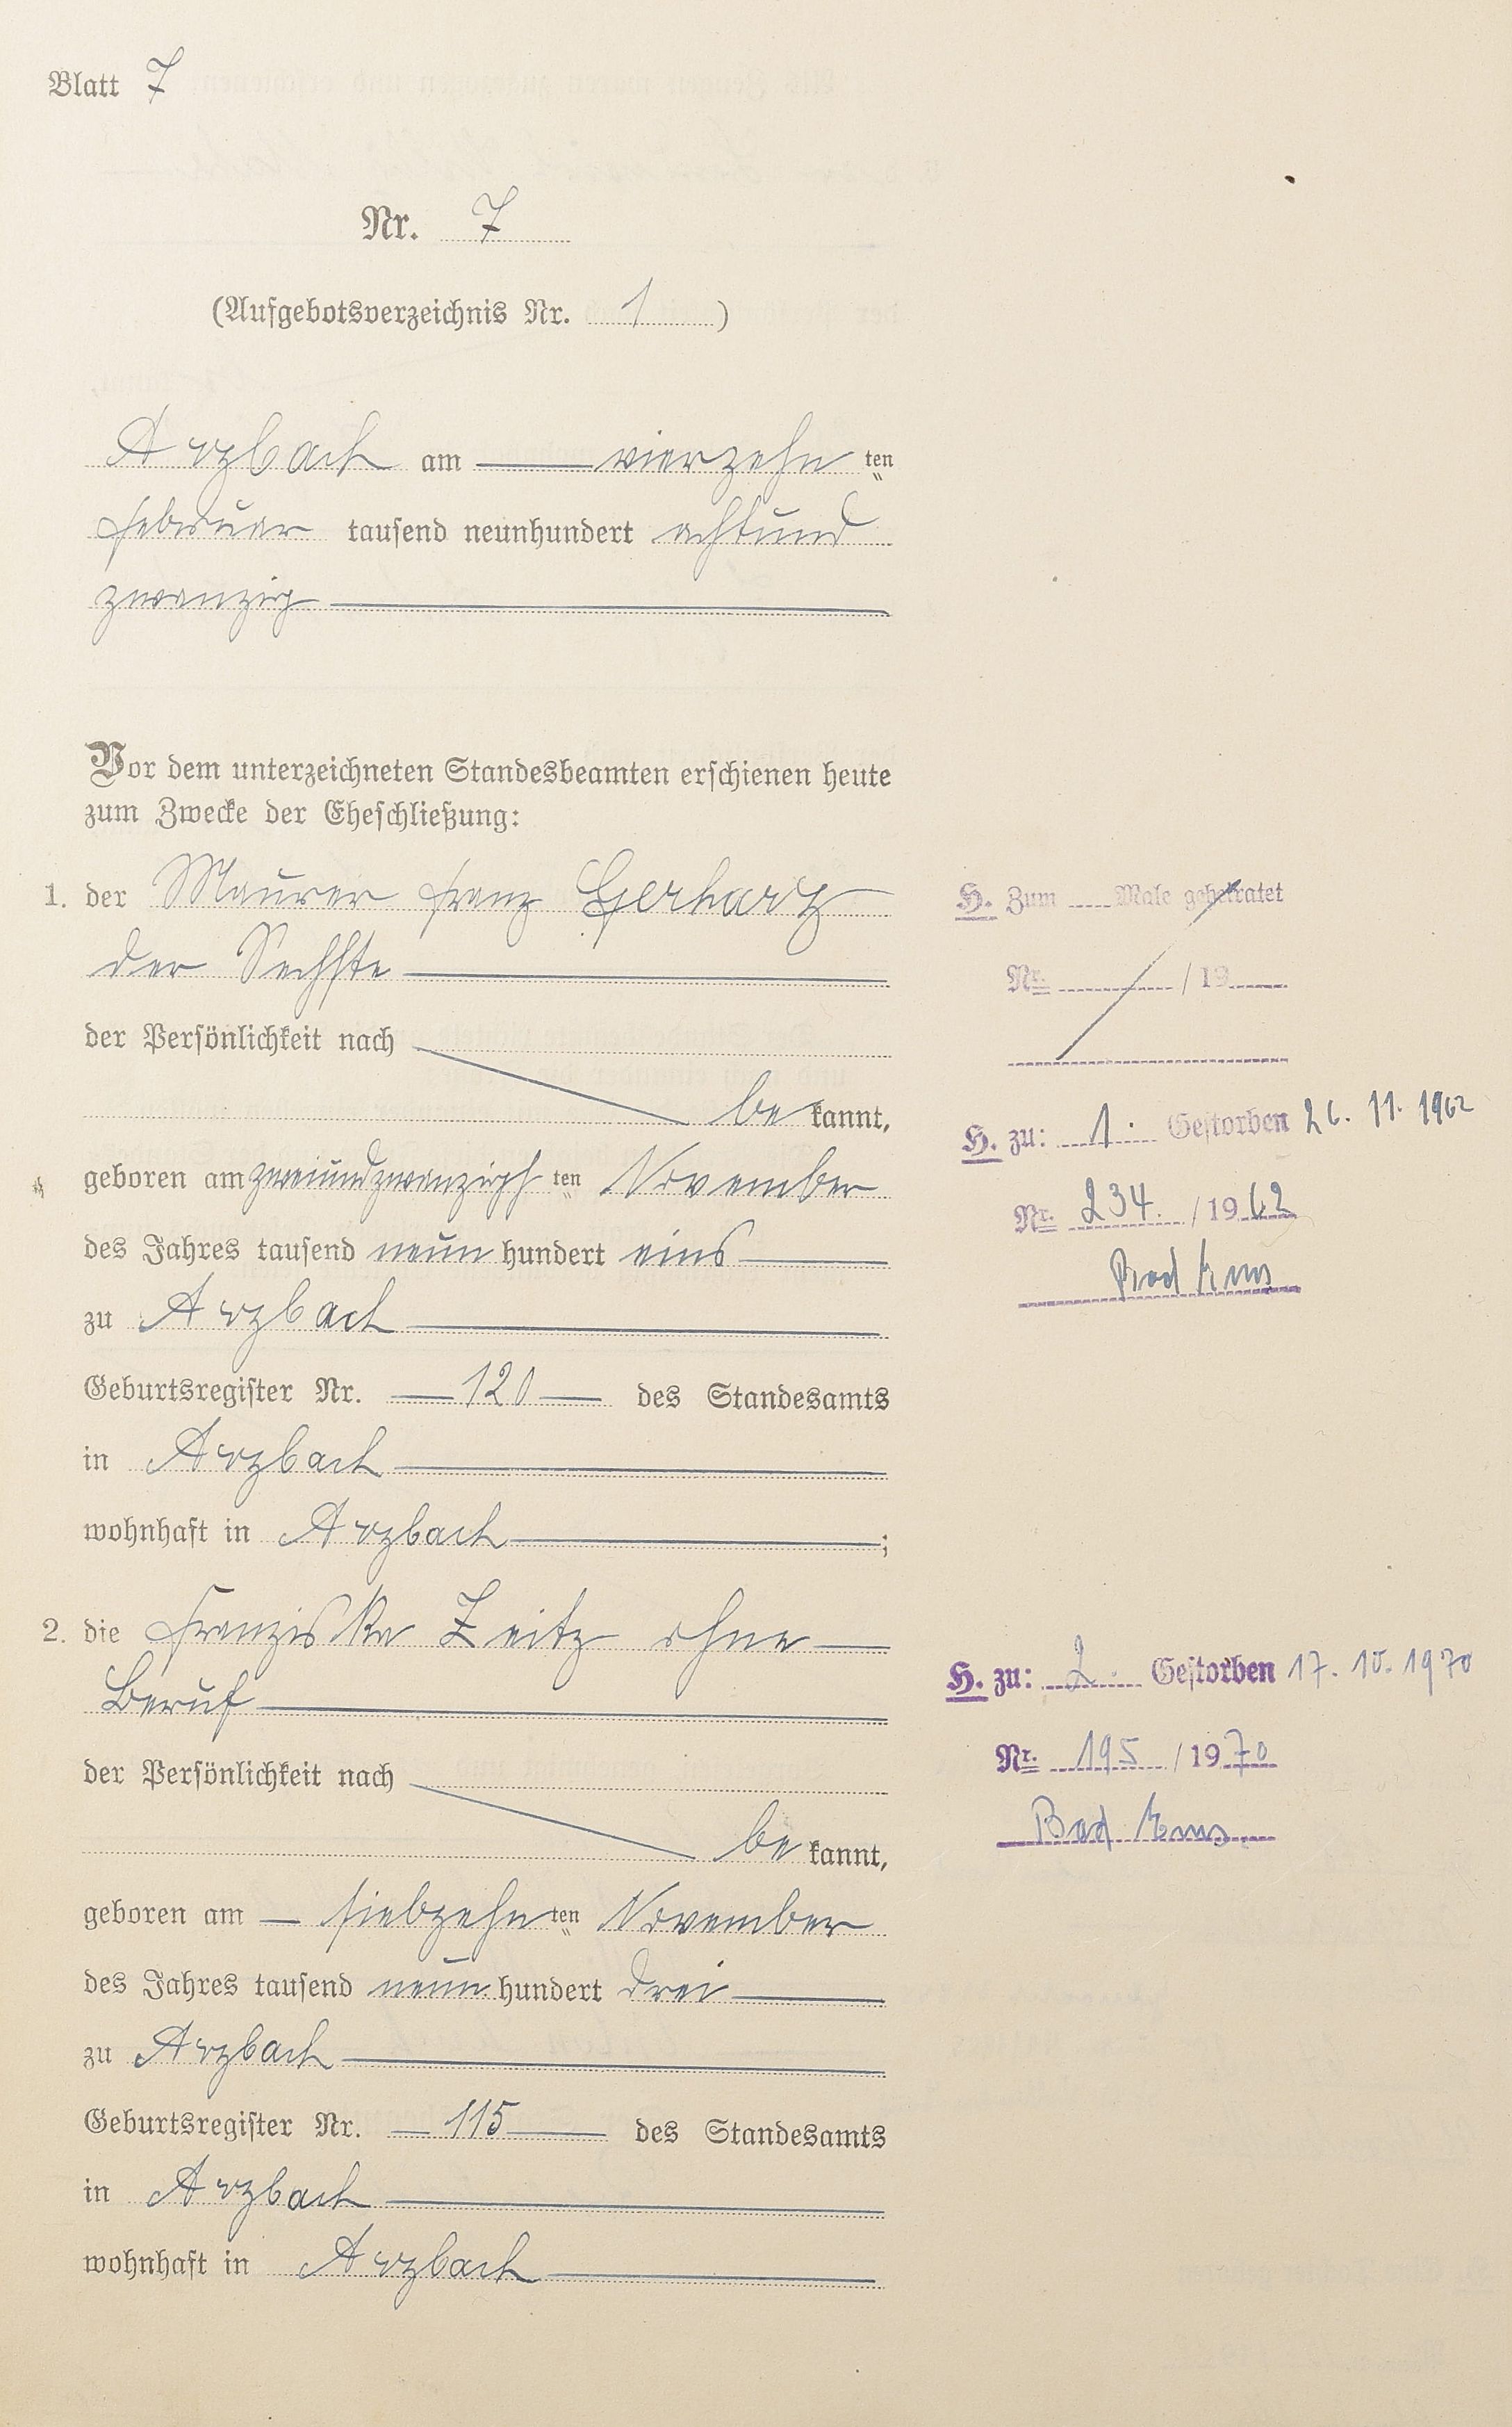 Blatt 7
Nr. 7
(Aufgebotsverzeichnis Nr. 1)
Arzbach am vierzehn ten
Februar tausend neunhundert achtund
zwanzig
Vor dem unterzeichneten Standesbeamten erschienen heute
zum Zwecke der Eheschließung:
1. der Maurer Franz Gerhartz
der Sechste
der Persönlichkeit nach
be kannt,
geboren am zweiundzwanzigst ten November
des Jahres tausend neun hundert eins
zu Arzbach
Geburtsregister Nr. 120 des Standesamts
in Arzbach
wohnhaft in Arzbach;
2. die Franziska Zeitz ohne
Beruf
der Persönlichkeit nach
be kannt,
geboren am siebzehn ten November
des Jahres tausend neun hundert drei
zu Arzbach
Geburtsregister Nr. 115 des Standesamts
in Arzbach
wohnhaft in Arzbach
H. Zum Male geheiratet
Nr. / 19
H. zu: 1. Gestorben 26. 11. 1962
Nr. 234. / 1962
Bad Ems
H. zu: 2. Gestorben 17. 10. 1970
Nr. 195 / 1970
Bad Ems